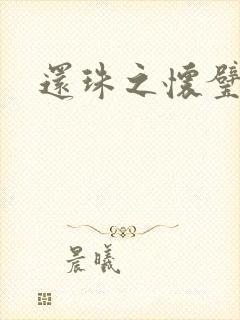 還珠之懷璧
晨曦